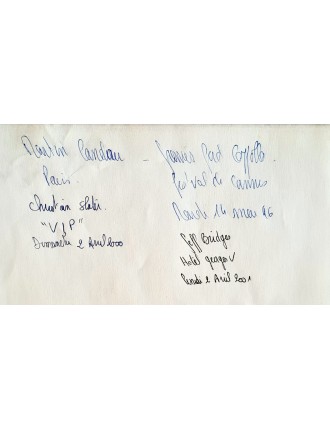 Martin Landau
Paris.
Christian Slater.
"VIP"
Dimanche 2 Avril 2000
- Francis Ford Coppola.
Festival de Cannes
Mardi 14 mai 96
Jeff Bridges
Hotel George V
Lundi 2 Avril 2001